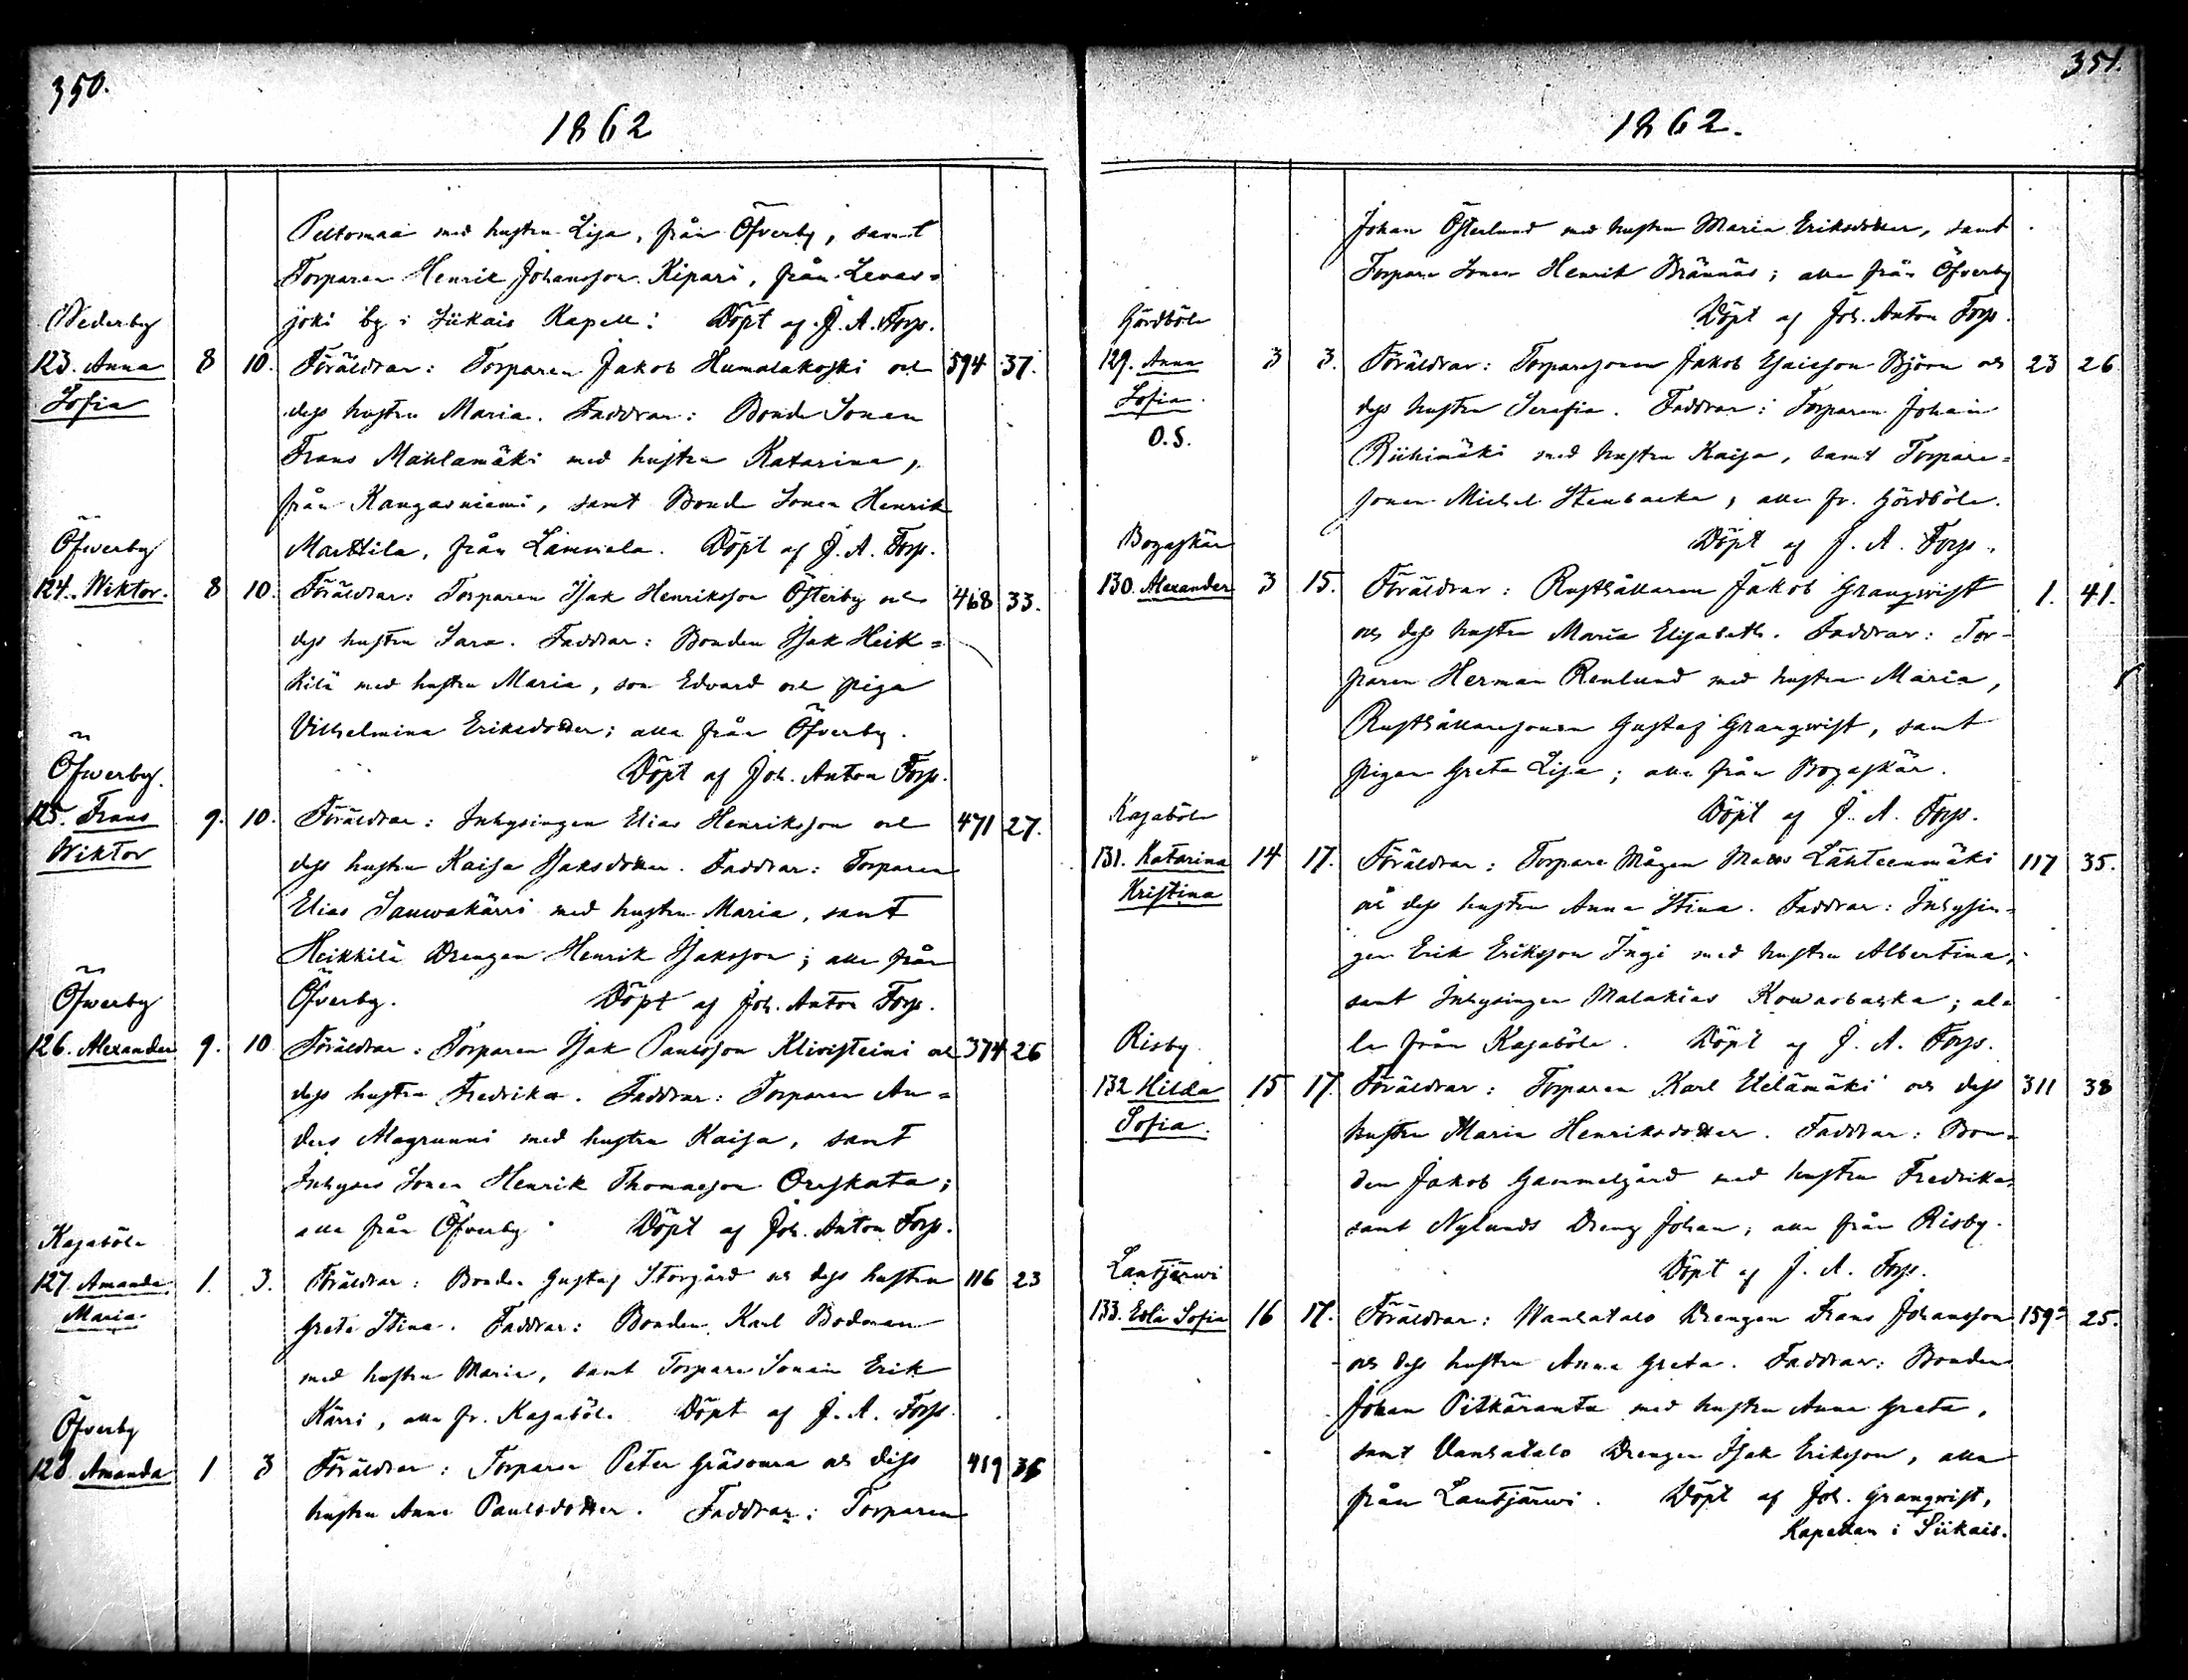 350.
1862
Peltomaa med hustru Lisa, från Öfverby, samt
Torparen Henrik Johansson Kipari, från Levas=
joki by i Siikais Kapell. Döpt af J. A. Forss.
Wederby
123. Anna 8 10. Föräldrar: Torparen Jakob Humalakoski och 594 37.
Sofia dess hustru Maria. Faddrar: Bonde Sonen
Frans Mäklamäki med hustru Katarina,
från Kangasniemi, samt Bonde Sonen Henrik
Marttila, från Lamnela. Döpt af J. A. Forss.
Öfwerby
124. Wiktor. 8 10. Föräldrar: Torparen Isak Henriksson Österby och 468 33.
dess hustru Sara. Faddrar: Bonden Isak Heik=
kilä med hustru Maria, son Edvard och piga
Vilhelmina Eriksdotter; alla från Öfverby.
Döpt af Joh. Anton Forss.
Öfwerby.
125. Frans 9. 10. Föräldrar: Inhysingen Elias Henriksson och 471 27.
Wiktor dess hustru Kaisa Isaksdotter. Faddrar: Torparen
Elias Sauwakärri med hustru Maria, samt
Heikkilä Drengen Henrik Isaksson; alla från
Öfverby. Döpt af Joh. Anton Forss.
Öfwerby
126. Alexander 9. 10 Föräldrar: Torparen Isak Paulsson Kliwisteini och 374 26
dess hustru Fredrika. Faddrar: Torparen An=
ders Alagrunni med hustru Kaisa, samt
Inhyses Sonen Henrik Thomasson Orrskata;
alla från Öfverby. Döpt af Joh. Anton Forss.
Kasaböle
127. Amanda 1. 3. Föräldrar: Bonden Gustaf Storgård och dess hustru 116 23
Maria. Greta Stina. Faddrar: Bonden Karl Bodman
med hustru Maria, samt Torpare Sonen Erik
Kärri, alla fr. Kasaböle. Döpt af J. A. Forss.
Öfverby
128. Amanda 1 3 Föräldrar: Torparen Peter Gräsoura och dess 419 36
hustru Anna Paulsdotter. Faddrar: Torparen
351.
1862.
Johan Österlund med hustru Maria Eriksdotter, samt
Torpare Sonen Henrik Brännäs; alla från Öfverby
Döpt af Joh. Anton Forss.
Gårdböle
129. Anna 3 3. Föräldrar: Torparesonen Jakob Esaiesson Björn och 23 26
Sofia. dess hustru Serafia. Faddrar: Torparen Johan
O.S. Riihimäki med hustru Kaisa, samt Torpare=
sonen Michel Stenbacka, alla fr. Gårdböle.
Döpt af J. A. Forss.
Bogaskär
130. Alexander 3 15. Föräldrar: Rusthållaren Jakob Granqwist 1. 41.
och dess hustru Maria Elisabeth. Faddrar: Tor-
paren Herman Renlund med hustru Maria,
Rusthållaresonen Gustaf Granqwist, samt
pigan Greta Lisa; alla från Bogaskär.
Döpt af J. A. Forss.
Kasaböle
131. Katarina 14 17. Föräldrar: Torpare Mågen Matts Lähteenmäki 117 35.
Kristina och dess hustru Anna Stina. Faddrar: Inhysin=
gen Erik Eriksson Ingi med hustru Albertina,
samt Inhysingen Malakias Kowasbacka; al=
la från Kasaböle. Döpt af J. A. Forss.
Risby
132 Hilda 15 17. Föräldrar: Torparen Karl Etelämäki och dess 311 38
Sofia. hustru Maria Henriksdotter. Faddrar: Bon=
den Jakob Gammelgård med hustru Fredrika
samt Nylunds Dreng Johan, alla från Risby.
Döpt af J. A. Forss.
Lautjärwi
133. Eva Sofia 16 17. Föräldrar: Wanhatalo Drengen Frans Johansson 159 25.
och dess hustru Anna Greta. Faddrar: Bonden
Johan Pitkäranta med hustru Anna Greta,
samt Vanhatalo Drengen Isak Eriksson, alla
från Lautjärwi. Döpt af Joh. Granqwist,
Kapellan i Siikais.